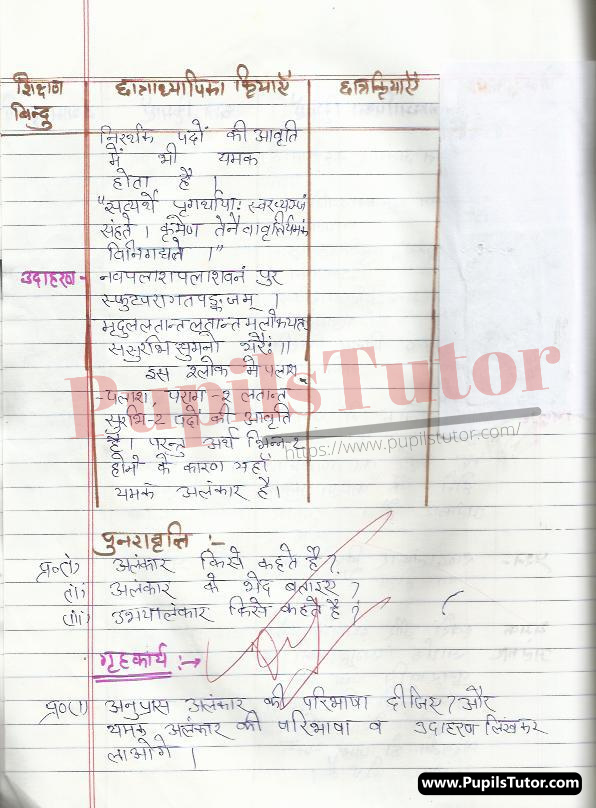 शिक्षण बिन्दु
छात्राध्यापिका क्रियाएँ
छात्रक्रियाएँ
निरर्थक पदों की आवृति
में भी यमक
होता है ।
"सत्यर्थे पृगर्थायाः स्वरव्यञ्जं
संहते । कृमेण तेनैवावृत्तिर्यमकं
विनिगद्यते ।"
उदाहरण - नवपलाशपलाशवनं पुर
स्फुटपरागतपङ्कजम् ।
मृदुललतान्तलतान्तमलोकयत्
ससुरभिं सुमनो भरैः ॥
इस श्लोक में पलाश
-पलाश, पराग-२ लतान्त
सुरभि-2 पदों की आवृति
है । परन्तु अर्थ भिन्न-2
होने के कारण यहाँ
यमक अलंकार है ।
पुनरावृत्ति :-
प्र०(i) अलंकार किसे कहते है ?
(ii) अलंकार के भेद बताइए ?
(iii) उभयालंकार किसे कहते है ?
गृहकार्य :→
प्र०(1) अनुप्रास अलंकार की परिभाषा दीजिए ? और
यमक अलंकार की परिभाषा व उदाहरण लिखकर
लाओगे ।
PupilsTutor
https://www.pupilstutor.com/
www.PupilsTutor.com